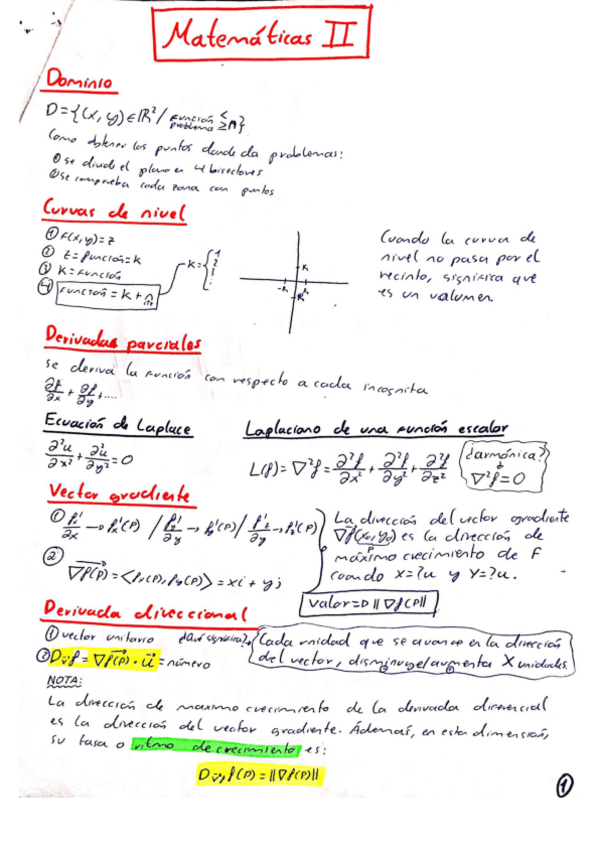 Matemáticas II
Dominio
D={(x, y)∈ℝ²/ función problema ≤ ≥ n}
Como obtener los puntos donde da problemas:
① se divide el plano en 4 bisectores
② se comprueba cada zona con puntos
Curvas de nivel
① F(x,y)=z
② z=función=k
③ K=función
④ Función = k + n
K={1 2 3 :
-K K K -K
Cuando la curva de
nivel no pasa por el
recinto, significa que
es un volumen.
Derivadas parciales
se deriva la función con respecto a cada incognita
∂f/∂x + ∂f/∂y + ....
Ecuación de Laplace
∂²u/∂x² + ∂²u/∂y² = 0
Laplaciano de una función escalar
L(f)=∇²f= ∂²f/∂x² + ∂²f/∂y² + ∂²f/∂z²
¿armónica?
∇²f=0
Vector gradiente
① f'x/∂x → f'x(P) / f'y/∂y → f'y(P) / f'z/∂y → f'z(P)
② ∇f(P) = <fx(P), fy(P)> = xi + yj
La dirección del vector gradiente
∇f(x₀,y₀) es la dirección de
P
máximo crecimiento de F
cuando x=?u y Y=?u.
Valor=D ||∇f(P)||
Derivada direccional
① vector unitario ¿Qué significa?
② Dv,f = ∇f(P) · u = número
Cada unidad que se avance en la dirección
del vector, disminuye/aumenta X unidades.
NOTA:
La dirección de maximo crecimiento de la derivada direccional
es la dirección del vector gradiente. Además, en esta dimensión,
su tasa o ritmo de crecimiento es:
Dv,f(P) = ||∇f(P)||
1